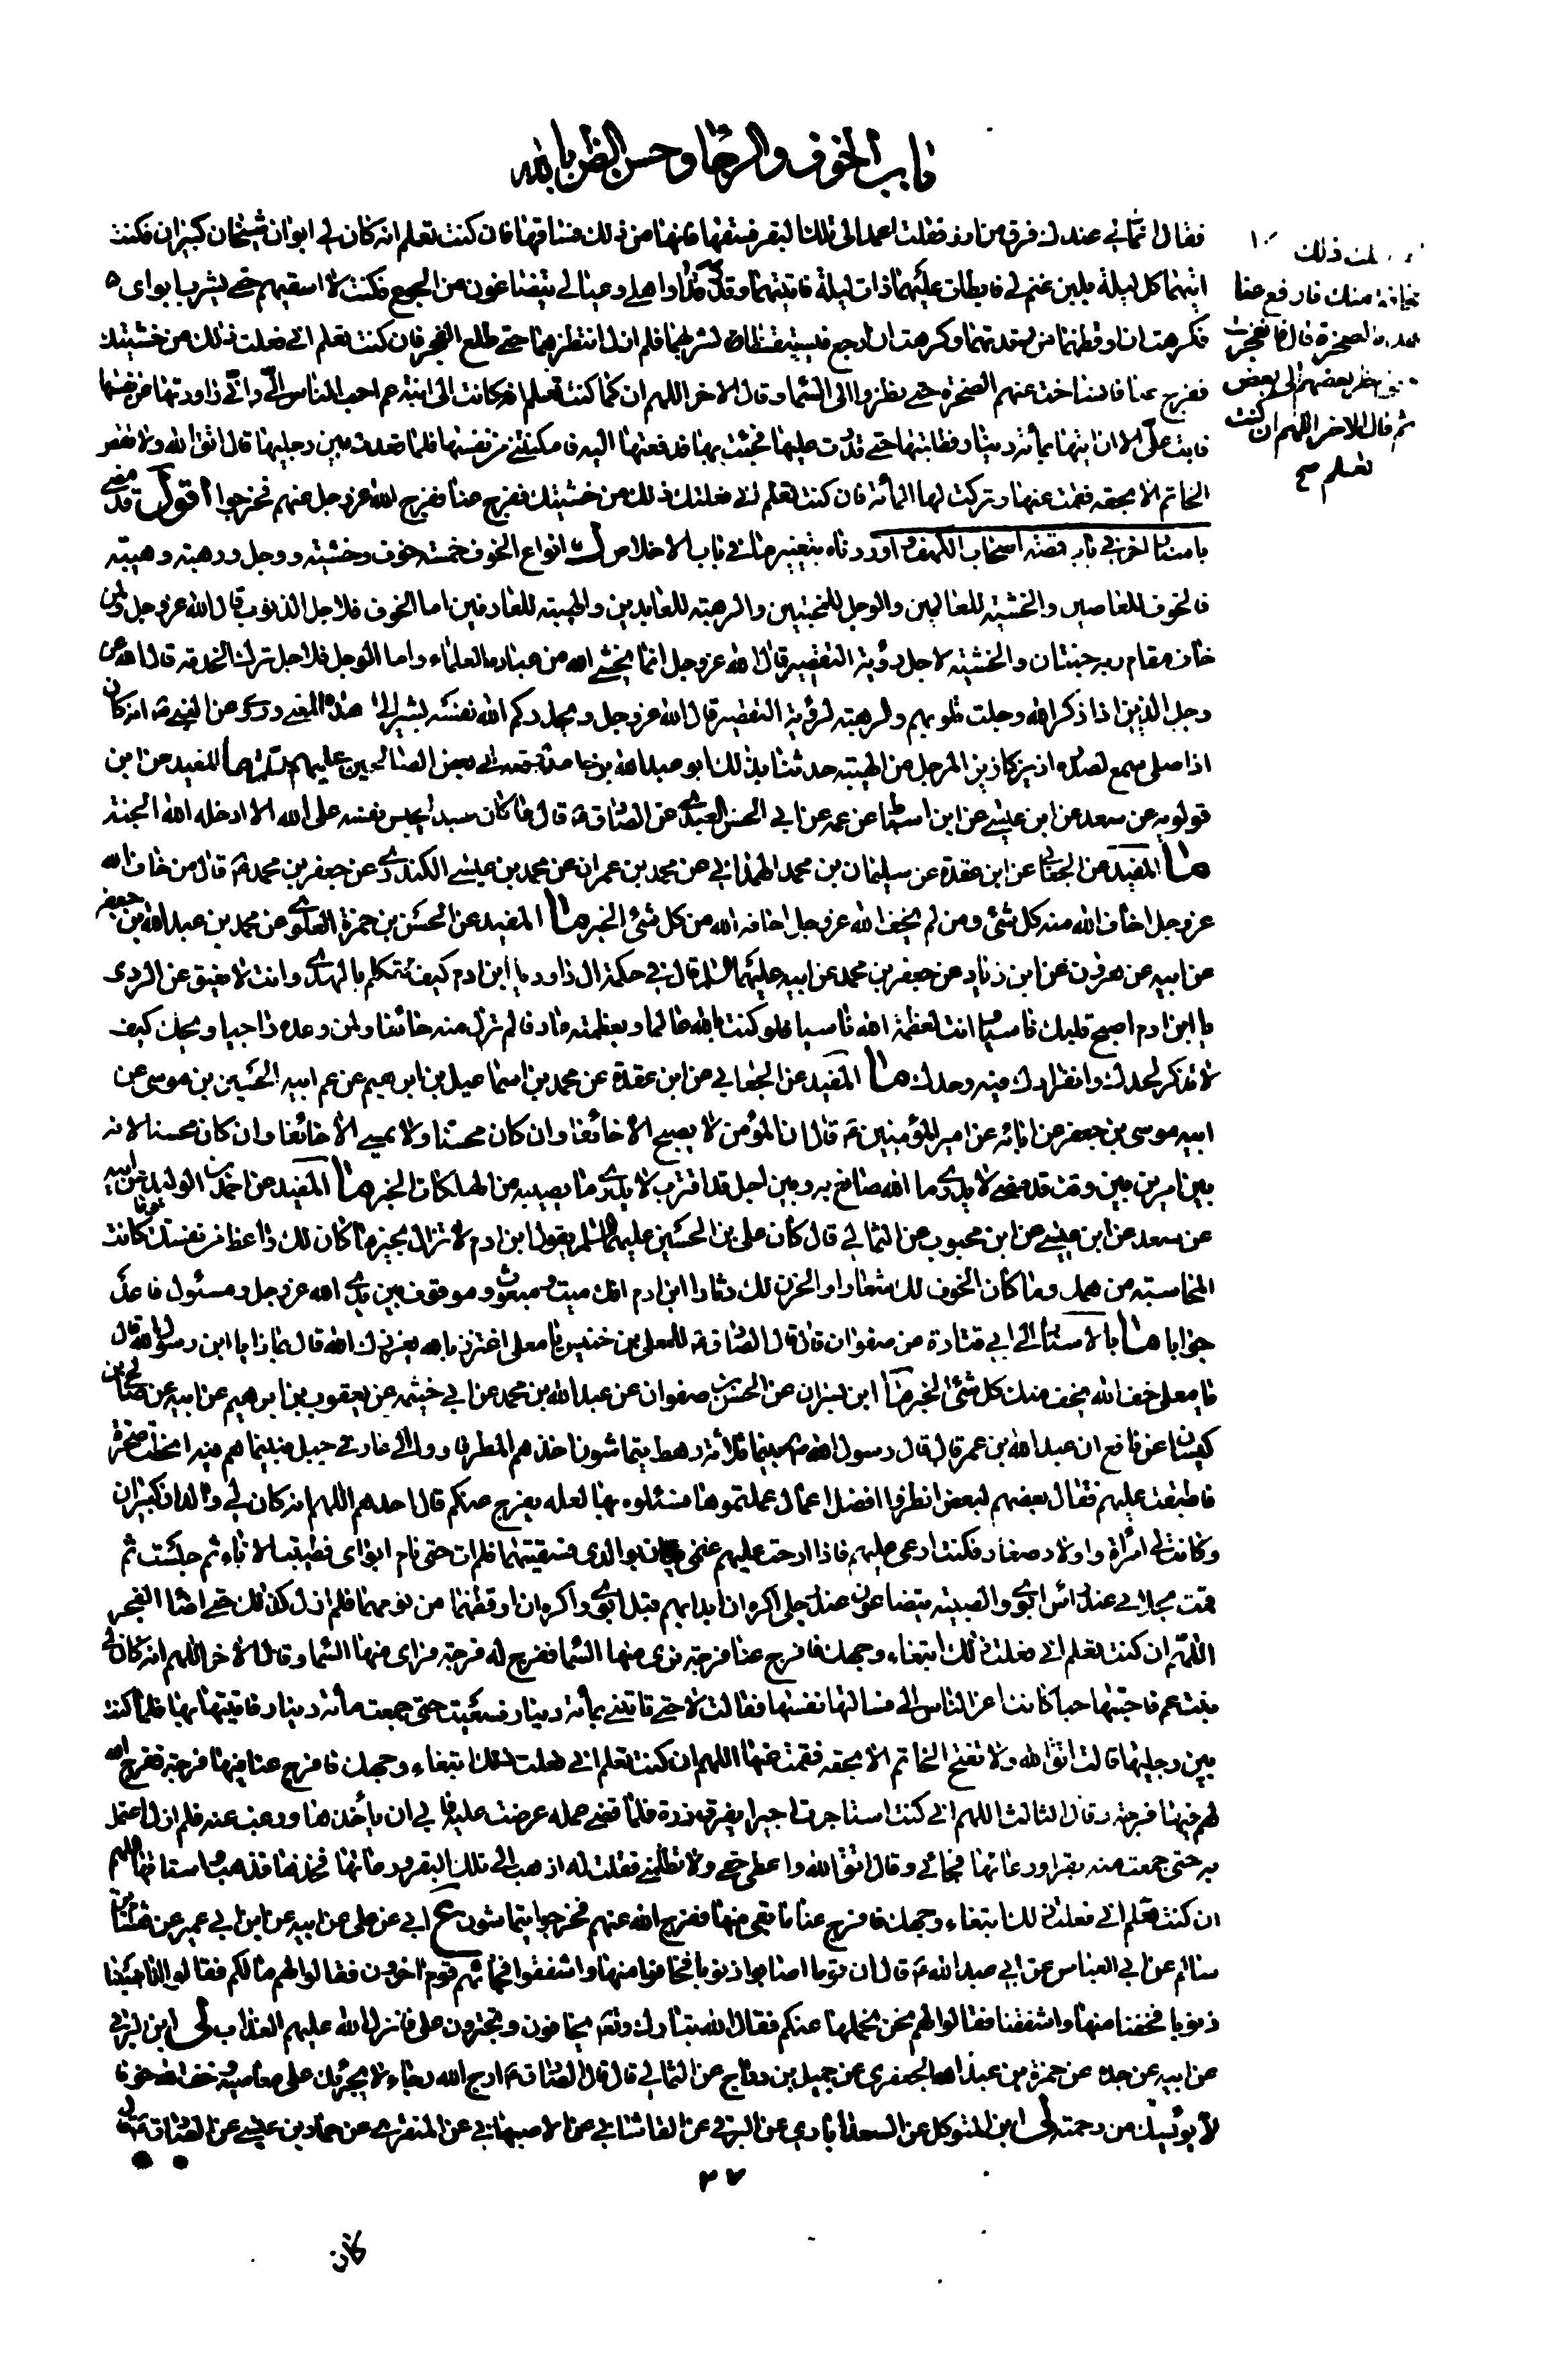 باب الخوف والرجاء وحسن الظن بالله
فقال انما لي عندك فرق من ارز فقلت اعمد الى تلك البقر فسقها فانها من ذلك فساقها فان كنت تعلم انه كان لي ابوان شيخان كبيران فكنت
اتيهما كل ليلة بلبن غنم لي فابطات عليهما ذات ليلة فاتيتهما وقد رقدا واهلي وعيالي يتضاغون من الجوع فكنت لا اسقيهم حتى يشرب ابواى
فكرهت ان اوقظهما من رقدتهما وكرهت ان ارجع فيستيقظا لشربهما فلم ازل انتظرهما حتى طلع الفجر فان كنت تعلم انى فعلت ذلك من خشيتك
ففرج عنا فانساخت عنهم الصخرة حتى نظروا الى السماء وقال الاخر اللهم ان كنت تعلم انه كانت لى ابنة عم احب الناس الى وانى راودتها عن نفسها
فابت على الا ان اتيها بمائة دينار فطلبتها حتى قدرت عليها فجئت بها فدفعتها اليها فامكنتنى من نفسها فلما قعدت بين رجليها قال اتق الله ولا تفض
الخاتم الا بحقه فقمت عنها وتركت لها المائة فان كنت تعلم انى فعلت ذلك من خشيتك ففرج عنا ففرج الله عز وجل عنهم فخرجوا اقول قد مضى
باسناد اخر في باب قصة اصحاب الكهف و اوردناه بتغيير ما في باب الاخلاص ل انواع الخوف خمسة خوف وخشية ووجل ورهبة وهيبة
فالخوف للعاصين والخشية للعالمين والوجل للمخبتين والرهبة للعابدين والهيبة للعارفين اما الخوف فلاجل الذنوب قال الله عز وجل ولمن
خاف مقام ربه جنتان والخشية لاجل رؤية التقصير قال الله عز وجل انما يخشى الله من عباده العلماء واما الوجل فلاجل ترك الخدمة قال الله عز
وجل الذين اذا ذكر الله وجلت قلوبهم والرهبة لرؤية التقصير قال الله عز وجل ويحذركم الله نفسه يشير الى هذا المعنى وروى عن النبي ص انه كان
اذا صلى سمع لصدره ازيز كازيز المرجل من الهيبة حدثنا بذلك ابو عبد الله بن حامد رفعه الى بعض الصالحين عليهم السلم ما المفيد عن ابن
قولويه عن سعد عن ابن عيسى عن ابن اسباط عن عمه عن ابي الحسن العبدى عن الصادق ع قال ما كان عبد ليحبس نفسه على الله الا ادخله الله الجنة
ما المفيد عن الجعابى عن ابن عقدة عن سليمان بن محمد الهمدانى عن محمد بن عمران عن محمد بن عيسى الكندى عن جعفر بن محمد ع قال من خاف الله
عز وجل اخاف الله منه كل شئ ومن لم يخف الله عز وجل اخافه الله من كل شئ الخبر ما المفيد عن الحسن بن حمزة العلوى عن محمد بن عبد الله بن جعفر
عن ابيه عن هرون عن ابن زياد عن جعفر بن محمد عن ابيه عليهما السلم قال في حكمة ال داود يا ابن ادم كيف تتكلم بالهدى وانت لا تفيق عن الردى
يا ابن ادم اصبح قلبك قاسيا وانت لعظمة الله ناسيا فلو كنت بالله عالما وبعظمته عارفا لم تزل منه خائفا ولمن وعده راجيا ويحك كيف
لا تذكر لحدك وانفرادك فيه وحدك ما المفيد عن الجعابي عن ابن عقدة عن محمد بن اسماعيل بن ابرهيم عن عم ابيه الحسين بن موسى عن
ابيه موسى بن جعفر عن ابائه عن امير المؤمنين ع قال ان المؤمن لا يصبح الا خائفا وان كان محسنا ولا يمسى الا خائفا وان كان محسنا لانه
بين امرين بين وقت قد مضى لا يدرى ما الله صانع به وبين اجل قد اقترب لا يدرى ما يصيبه من الهلكات الخبر ما المفيد عن احمد بن الوليد عن ابيه
عن سعد عن ابن عيسى عن ابن محبوب عن الثمالي قال كان على بن الحسين عليهما السلم يقول ابن ادم لا تزال بخير ما كان لك واعظ من نفسك وما كانت
المحاسبة من همك وما كان الخوف لك شعارا والحزن لك دثارا ابن ادم انك ميت ومبعوث وموقوف بين يدى الله عز وجل ومسئول فاعد
جوابا ما بالاسناد الى ابي قتادة عن صفوان قال قال الصادق ع للمعلى بن خنيس يا معلى اعتزز بالله يعززك الله قال بماذا يا ابن رسول الله قال
يا معلى خف الله يخف منك كل شئ الخبر ما ابن بشران عن الحسن بن صفوان عن عبد الله بن محمد عن ابي خيثمة عن يعقوب بن ابرهيم عن ابيه عن صالح بن
كيسان عن نافع ان عبد الله بن عمر قال قال رسول الله ص بينما ثلاثة رهط يتماشون اخذهم المطر فاووا الى غار في جبل فبينما هم فيه انحطت صخرة
فاطبقت عليهم فقال بعضهم لبعض انظروا افضل اعمال عملتموها فسئلوه بها لعله يفرج عنكم قال احدهم اللهم انه كان لي والدان كبيران
وكانت لي امراة واولاد صغار فكنت ارعى عليهم فاذا ارحت عليهم غنمى بدات بوالدى فسقيتهما فلم ات حتى نام ابواى فطيبت الاناء ثم حلبت ثم
قمت بحلابي عند رأس ابوى والصبية يتضاعون عند رجلى اكره ان ابدا بهم قبل ابوى واكره ان اوقظهما من نومهما فلم ازل كذلك حتى اضاء الفجر
اللهم ان كنت تعلم انى فعلت ذلك ابتغاء وجهك فافرج عنا فرجة نرى منها السماء ففرج له فرجة فراى منها السماء وقال الاخر اللهم انه كان لي
بنت عم فاحببتها حبا كانت اعز الناس الى فسالتها نفسها فقالت لا حتى تاتينى بمأئة دينار فسعيت حتى جمعت مأئة دينار فاتيتها بها فلما كنت
بين رجليها قالت اتق الله ولا تفتح الخاتم الا بحقه فقمت عنها اللهم ان كنت تعلم انى فعلت ذلك ابتغاء وجهك فافرج عنا فيها فرجة ففرج الله
لهم فيها فرجة وقال الثالث اللهم انى كنت استاجرت اجيرا بفرق ذرة فلما قضى عمله عرضت عليه فابي ان يأخذها ورغب عنه فلم ازل اعتمل
به حتى جمعت منه بقرا ورعاءها فجاءنى وقال اتق الله واعطنى حقى ولا تظلمنى فقلت له اذهب الى تلك البقر ورعاتها فخذها فذهب واستاقها اللهم
ان كنت تعلم انى فعلت ذلك ابتغاء وجهك فافرج عنا ما بقى منها ففرج الله عنهم فخرجوا يتماشون ع ابي عن على عن ابيه عن ابن ابي عمير عن هشام بن
سالم عن ابي العباس عن ابي عبد الله ع قال ان قوما اصابوا ذنوبا فخافوا منها واشفقوا فجائهم قوم اخرون فقالوا لهم مالكم فقالوا انا اصبنا
ذنوبا فخفنا منها واشفقنا فقالوا لهم نحن نحملها عنكم فقال الله تبارك وتع يخافون وتجترون على فانزل الله عليهم العذاب لى ابن البرقى
عن ابيه عن جده عن حمزة بن عبد الله الجعفرى عن جميل بن دراج عن الثمالي قال قال الصادق ع ارج الله رجاء لا يجرئك على معاصيه وخف الله خوفا
لا يؤيسك من رحمته لى ابن المتوكل عن السعدآبادي عن البرقي عن القاشاني عن الاصبهاني عن المنقرى عن حماد بن عيسى عن الصادق ع قال
٣٧
كان
فعلت ذلك
مخافة منك فارفع عنا
هذه الصخرة قال فانفجرت
حتى نظر بعضهم الى بعض
ثم قال الاخر اللهم ان كنت
تعلم صح